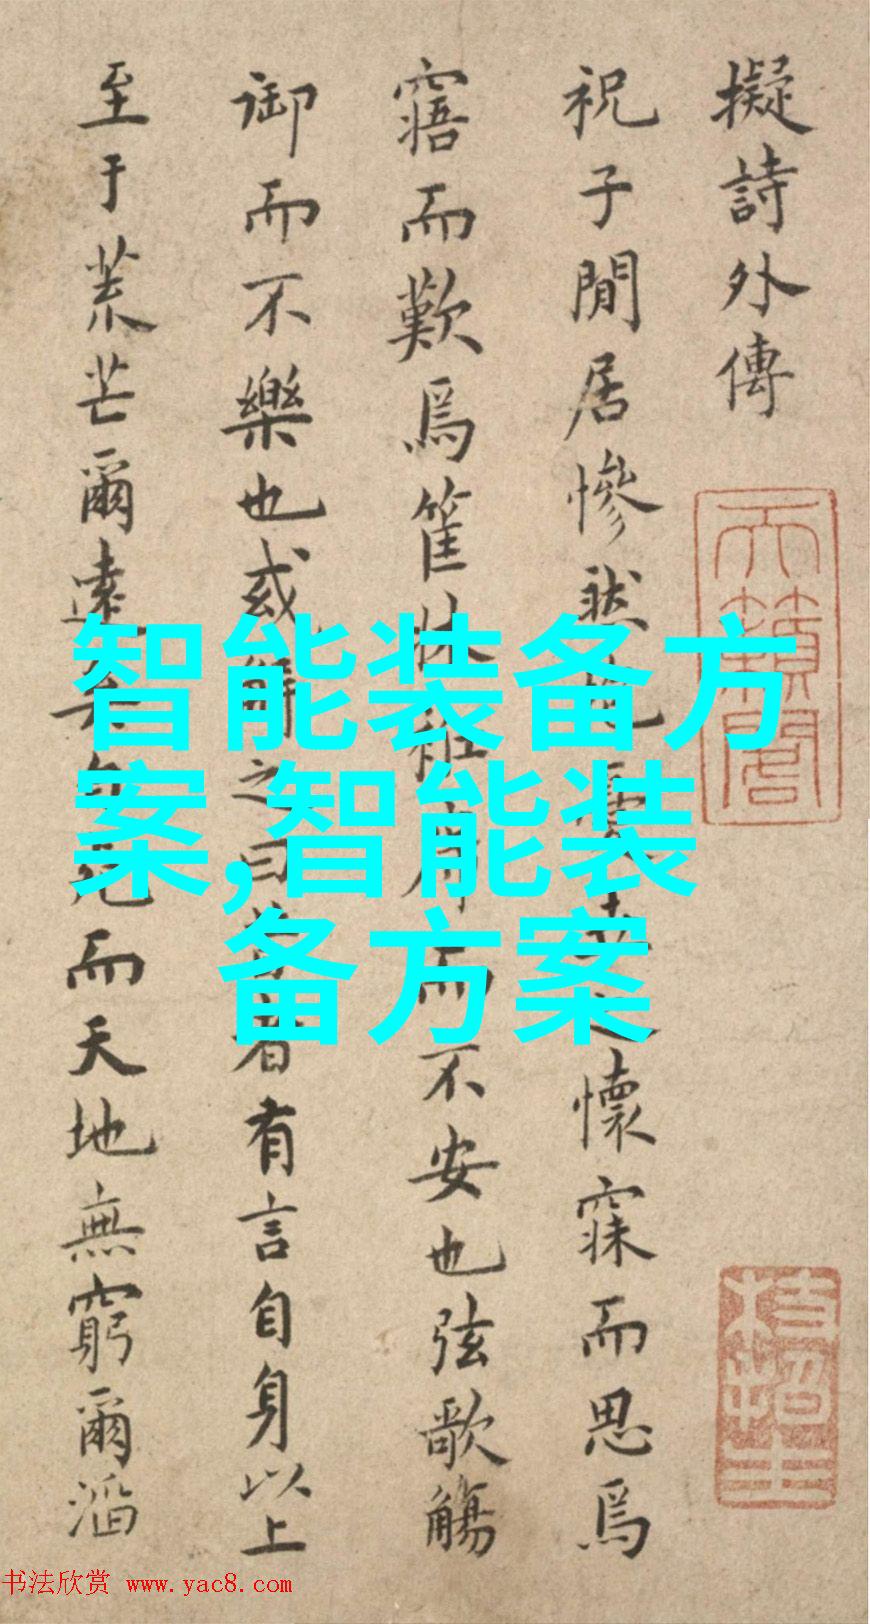 擬詩外傳
祝子閒居慘然
懷寐而思爲
寤而歎爲筐牀
而不安也弦歌觴
御而不樂也或解之曰
者有言自身以上
至于荒芒爾遠矣
而天地無窮爾滔
智能装备方
案,智能装
备方案
书法欣赏 www.yac8.com